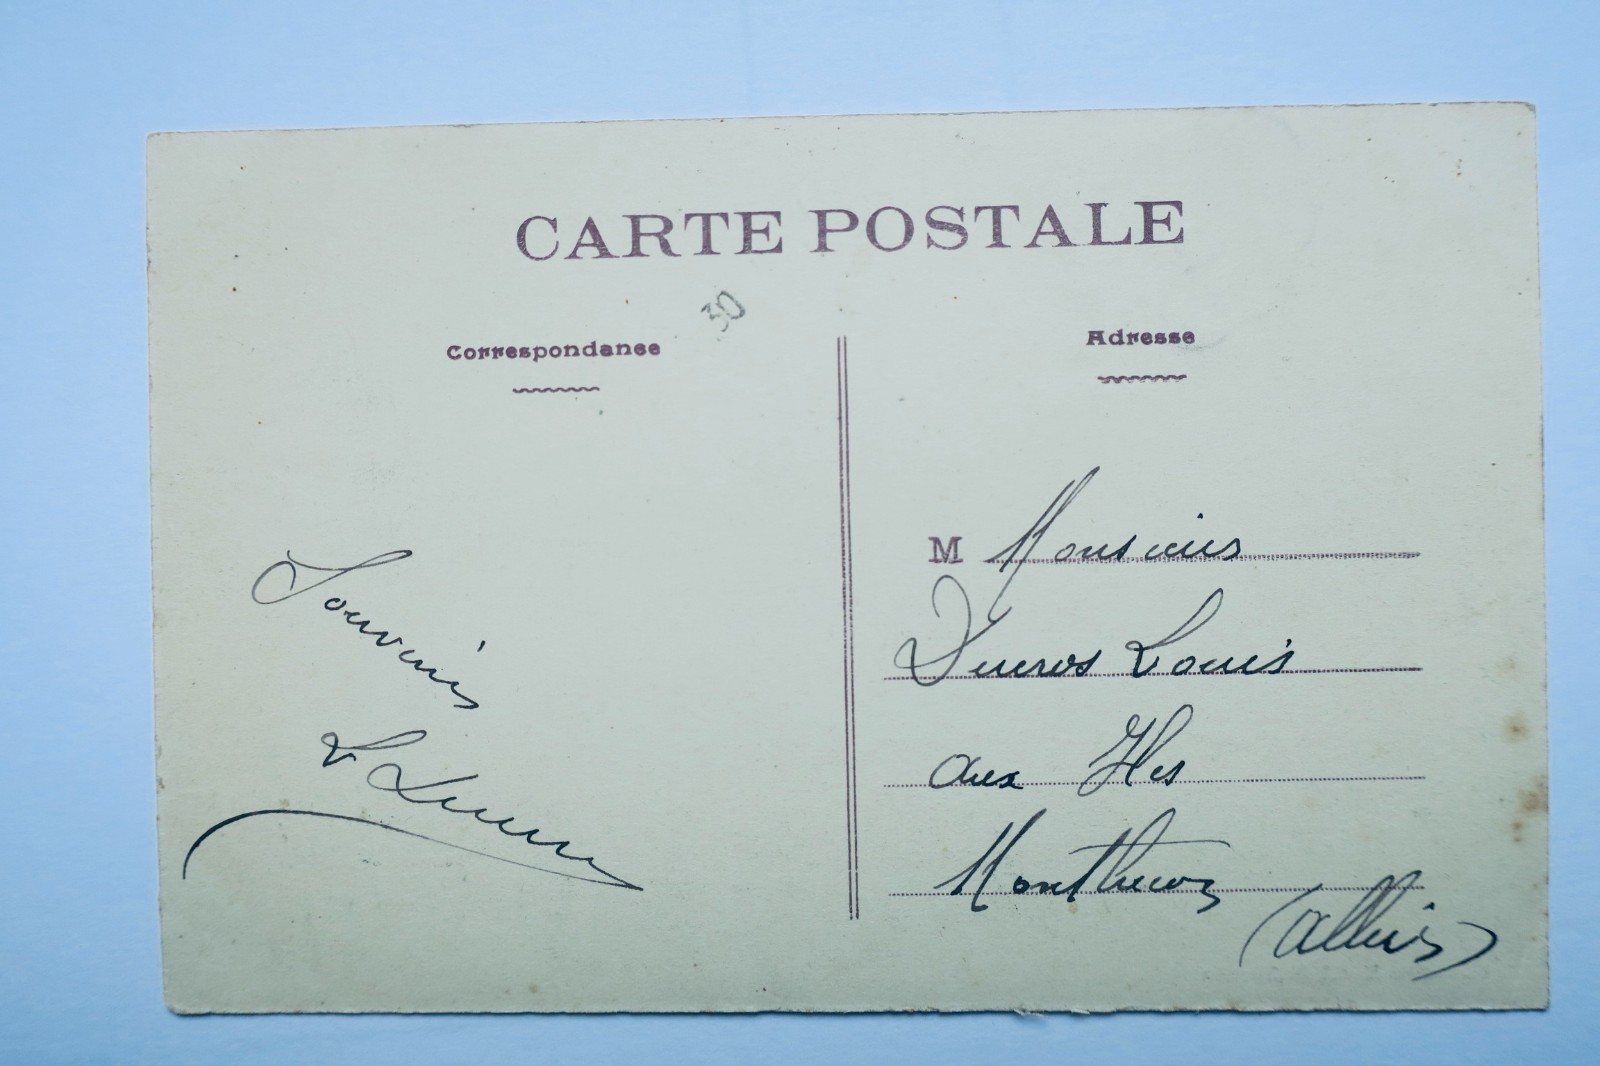 CARTE POSTALE
30
Correspondance
Adresse
Souvenir
M Monsieur
Ducros Louis
aux Iles
(Allier)